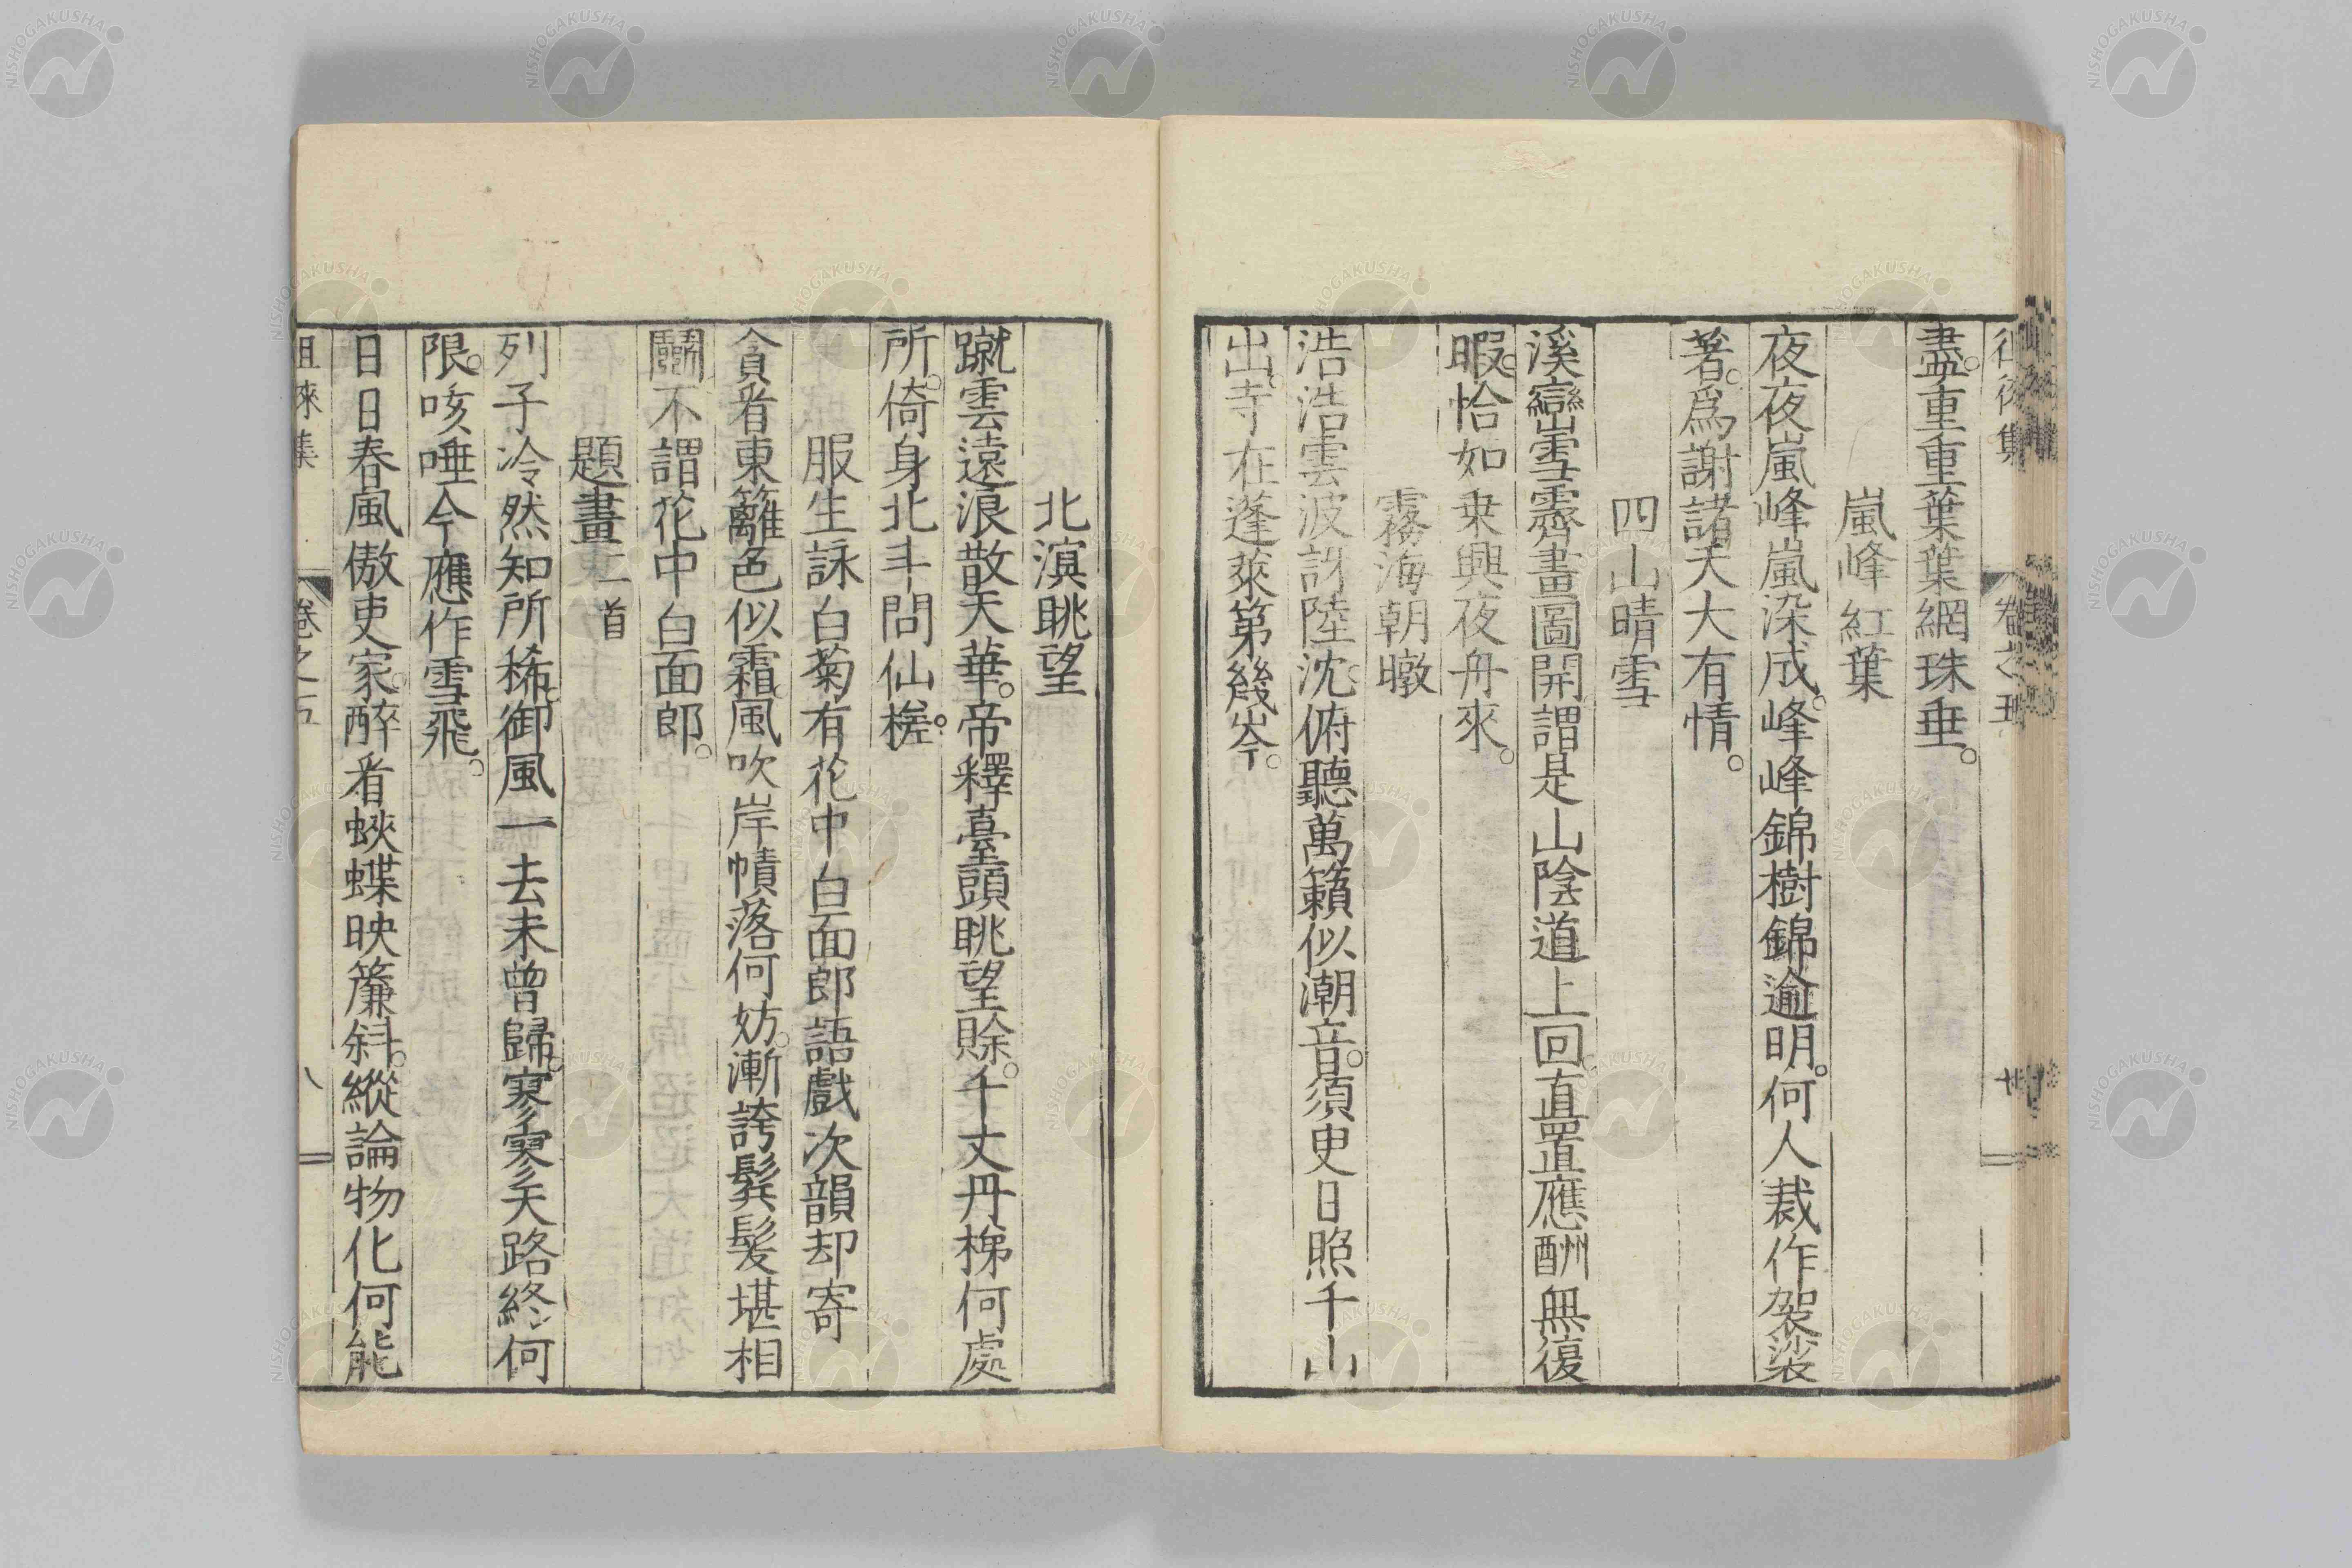 盡。重重葉葉網珠垂。
嵐峰紅葉
夜夜嵐峰嵐染成。峰峰錦樹錦逾明。何人裁作袈裟
著。爲謝諸天大有情。
四山晴雪
溪巒雪霽畫圖開。謂是山陰道上回。直置應酬無復
暇。恰如乗興夜舟來。
霧海朝暾
浩浩雲波訝陸沈。俯聽萬籟似潮音。須臾日照千山
出。寺在蓬萊第幾岑。
北溟眺望
蹴雲遠浪散天華。帝釋臺頭眺望賒。千丈丹梯何處
所。倚身北斗問仙槎。
服生詠白菊有花中白面郎語戲次韻却寄
貪看東籬色似霜。風吹岸幘落何妨。漸誇鬂髮堪相
鬬。不謂花中白面郎。
題畫二首
列子冷然知所稀。御風一去未曾歸。寥寥天路終何
限。咳唾今應作雪飛。
日日春風傲吏家。醉看蛺蝶映簾斜。縱論物化何能
徂徠集 卷之五
NISHOGAKUSHA